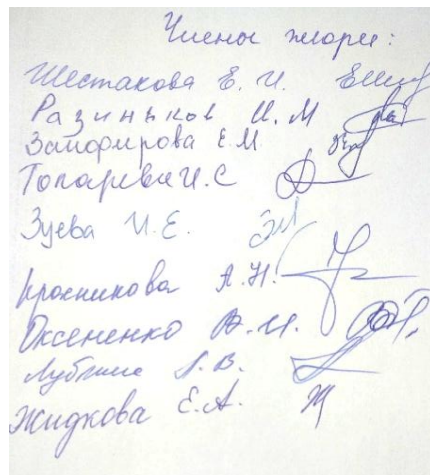 Члены жюри:
Шестакова Е. И.
Разиньков И. М
Замфирова Е. М.
Топарева И. С
Зуева И. Е.
А. Н.
Оксененко А. И.
В.
Жидкова Е. А.